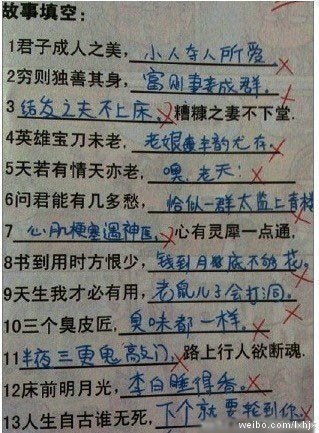 故事填空：
1君子成人之美，小人夺人所爱。
2穷则独善其身，富则妻妾成群。
3结发之夫不上床，糟糠之妻不下堂.
4英雄宝刀未老，老娘韵尤存。
5天若有情天亦老，噢，老天！
6问君能有几多愁，恰似一群太监上青楼
7心肌梗塞遇神医，心有灵犀一点通，
8书到用时方恨少，钱到月底不够花。
9天生我才必有用，老鼠儿子会打洞。
10三个臭皮匠，臭味都一样。
11半夜三更鬼敲门，路上行人欲断魂.
12床前明月光，李白睡得香。
13人生自古谁无死，下个就要轮到你.
weibo.com/lxhj